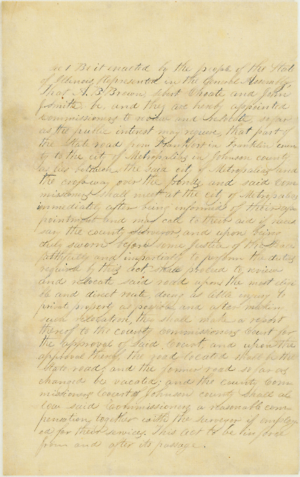 Be it enacted by the people of the State
of Illinois Represented in the General Assembly
that A. B. Brown, and John
be, and they are hereby appointed
commissioners to review and relocate so far
as the public interest may require, that part of
the State road from Frankfort in Franklin coun
ty to the city of Metropolis in Johnson county
as lies between the city of Metropolis and
the and said com
missioners shall meet at the city of Metropolis
immediately after being informed of their ap
pointment and
the county Surveyor, and upon being
duly sworn before some Justice of the Peace
faithfully and impartially to perform the duties
required by this act shall proceed to review
and relocate said road upon the most
and direct route, doing as little injury to
private property as possible, and after making
such relocation, they shall make a report
thereof to the county commissioners court for
the approval of said court, and upon the
approval thereof the road located shall be the
State road and the former road so far as
changed be vacated; and the county com
missioners court of Johnson county shall al
low said commissioners a reasonable com
pensation, together with the surveyor if employ
ed for their services. This act to be in force
from and after its passage.